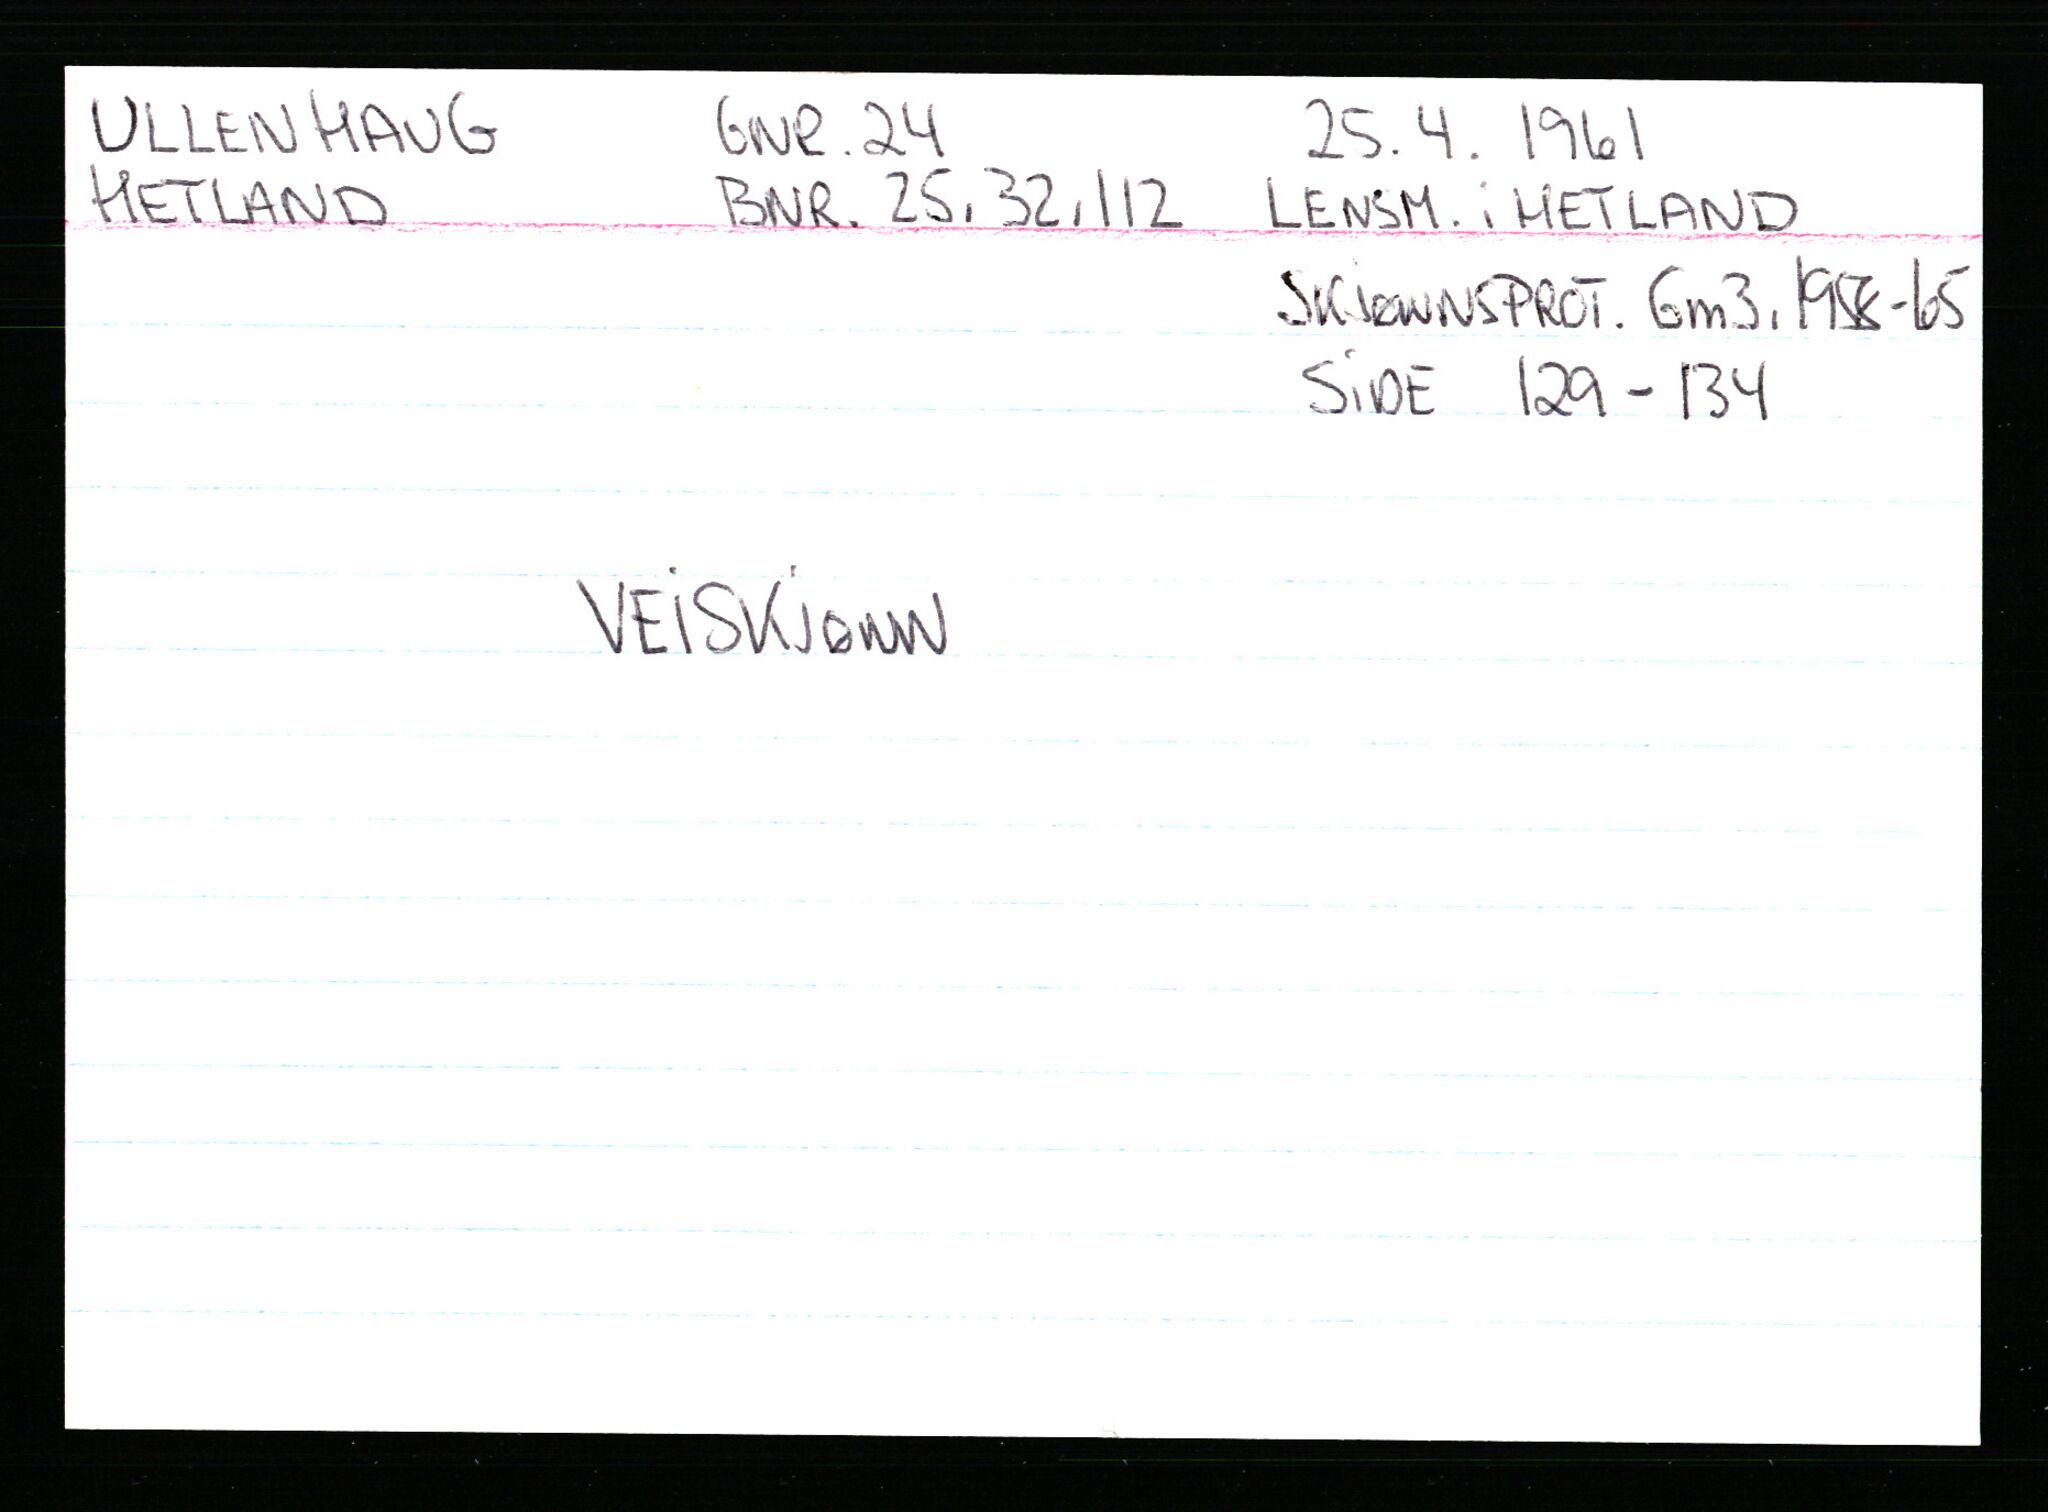 ULLENHAUG GNR. 24 25.4. 1961
HETLAND BNR. 25, 32, 112 LENSM. i HETLAND
SKJØNNSPROT. Gm3, 1958-65
SiDE 129 - 134
VEiSKJØNN